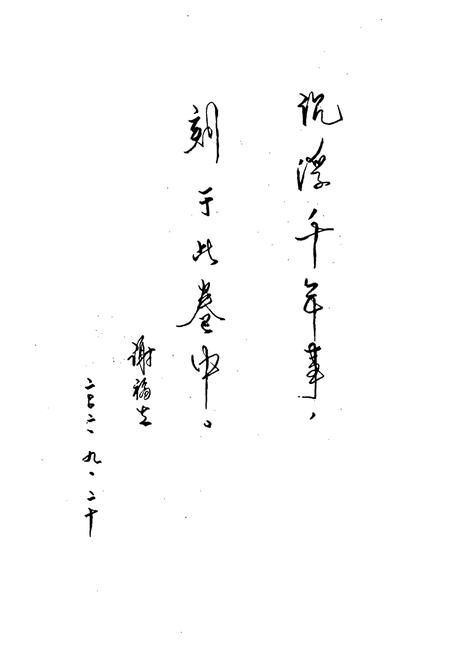 沉浮千年事，
刻于此卷中。
谢福芸
二〇〇二、九、二十